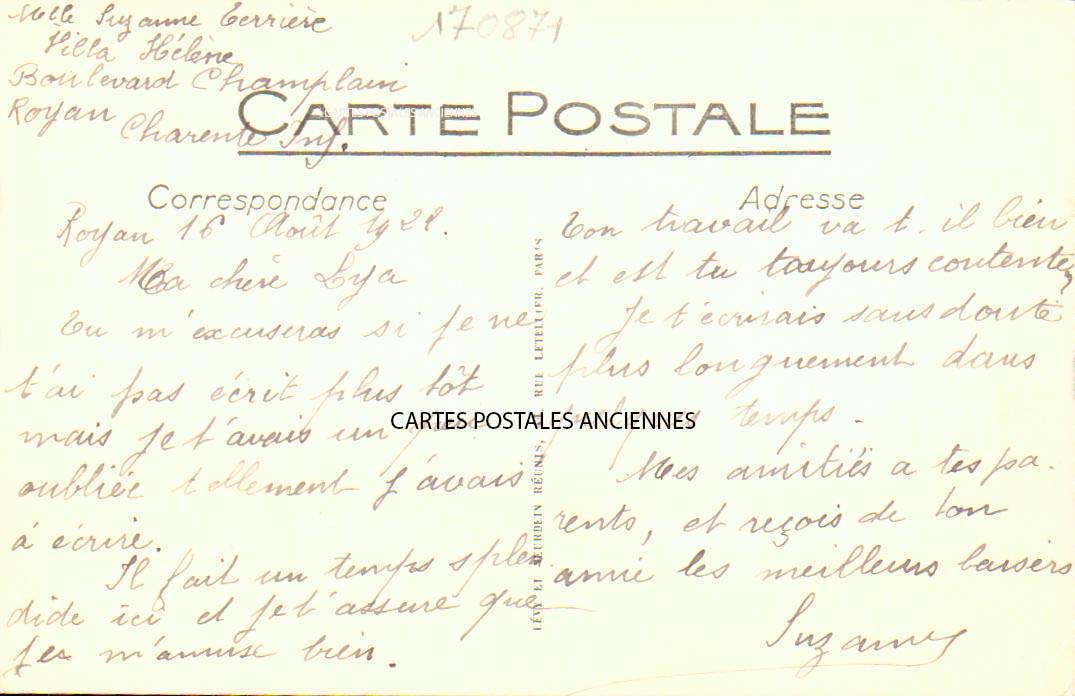 Melle Suzanne Terrière
Villa Hélène
Boulevard Champlain
Royan
Charente Inf.
170871
CARTE POSTALE
CARTES POSTALES ANCIENNES
Correspondance
Royan 16 Août 1922.
Ma chère Lya
Tu m'excuseras si je ne
t'ai pas écrit plus tôt
mais je t'avais un peu
oubliée tellement j'avais
à écrire.
Il fait un temps splen
dide ici et je t'assure que
je m'amuse bien.
LÉVY ET NEURDEIN RÉUNIS, RUE LETELLIER, PARIS
CARTES POSTALES ANCIENNES
Adresse
Ton travail va t. il bien
et est tu toujours contente?
Je t'écrirais sans doute
plus longuement dans
temps.
Mes amitiés a tes pa.
rents, et reçois de ton
amie les meilleurs baisers
Suzanne